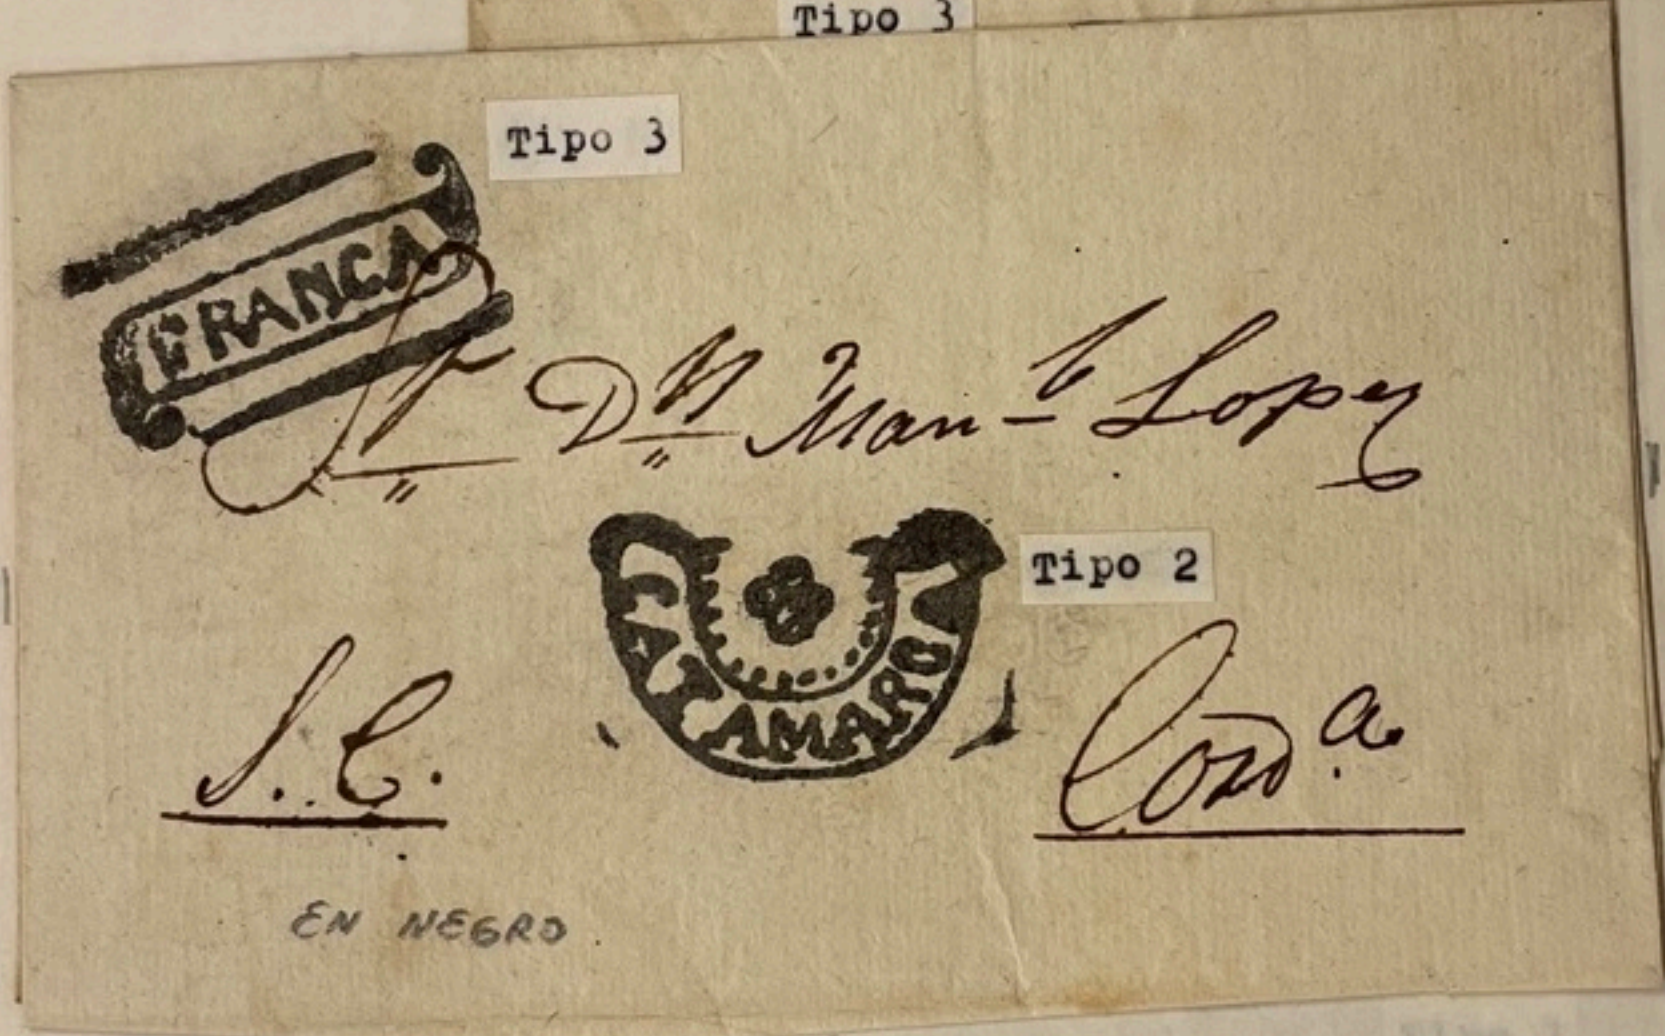 Tipo 3
Tipo 3
FRANCA
Sr Dn Man-l Lopez
Tipo 2
CATAMARCA
S. C.
Cord.a
EN NEGRO